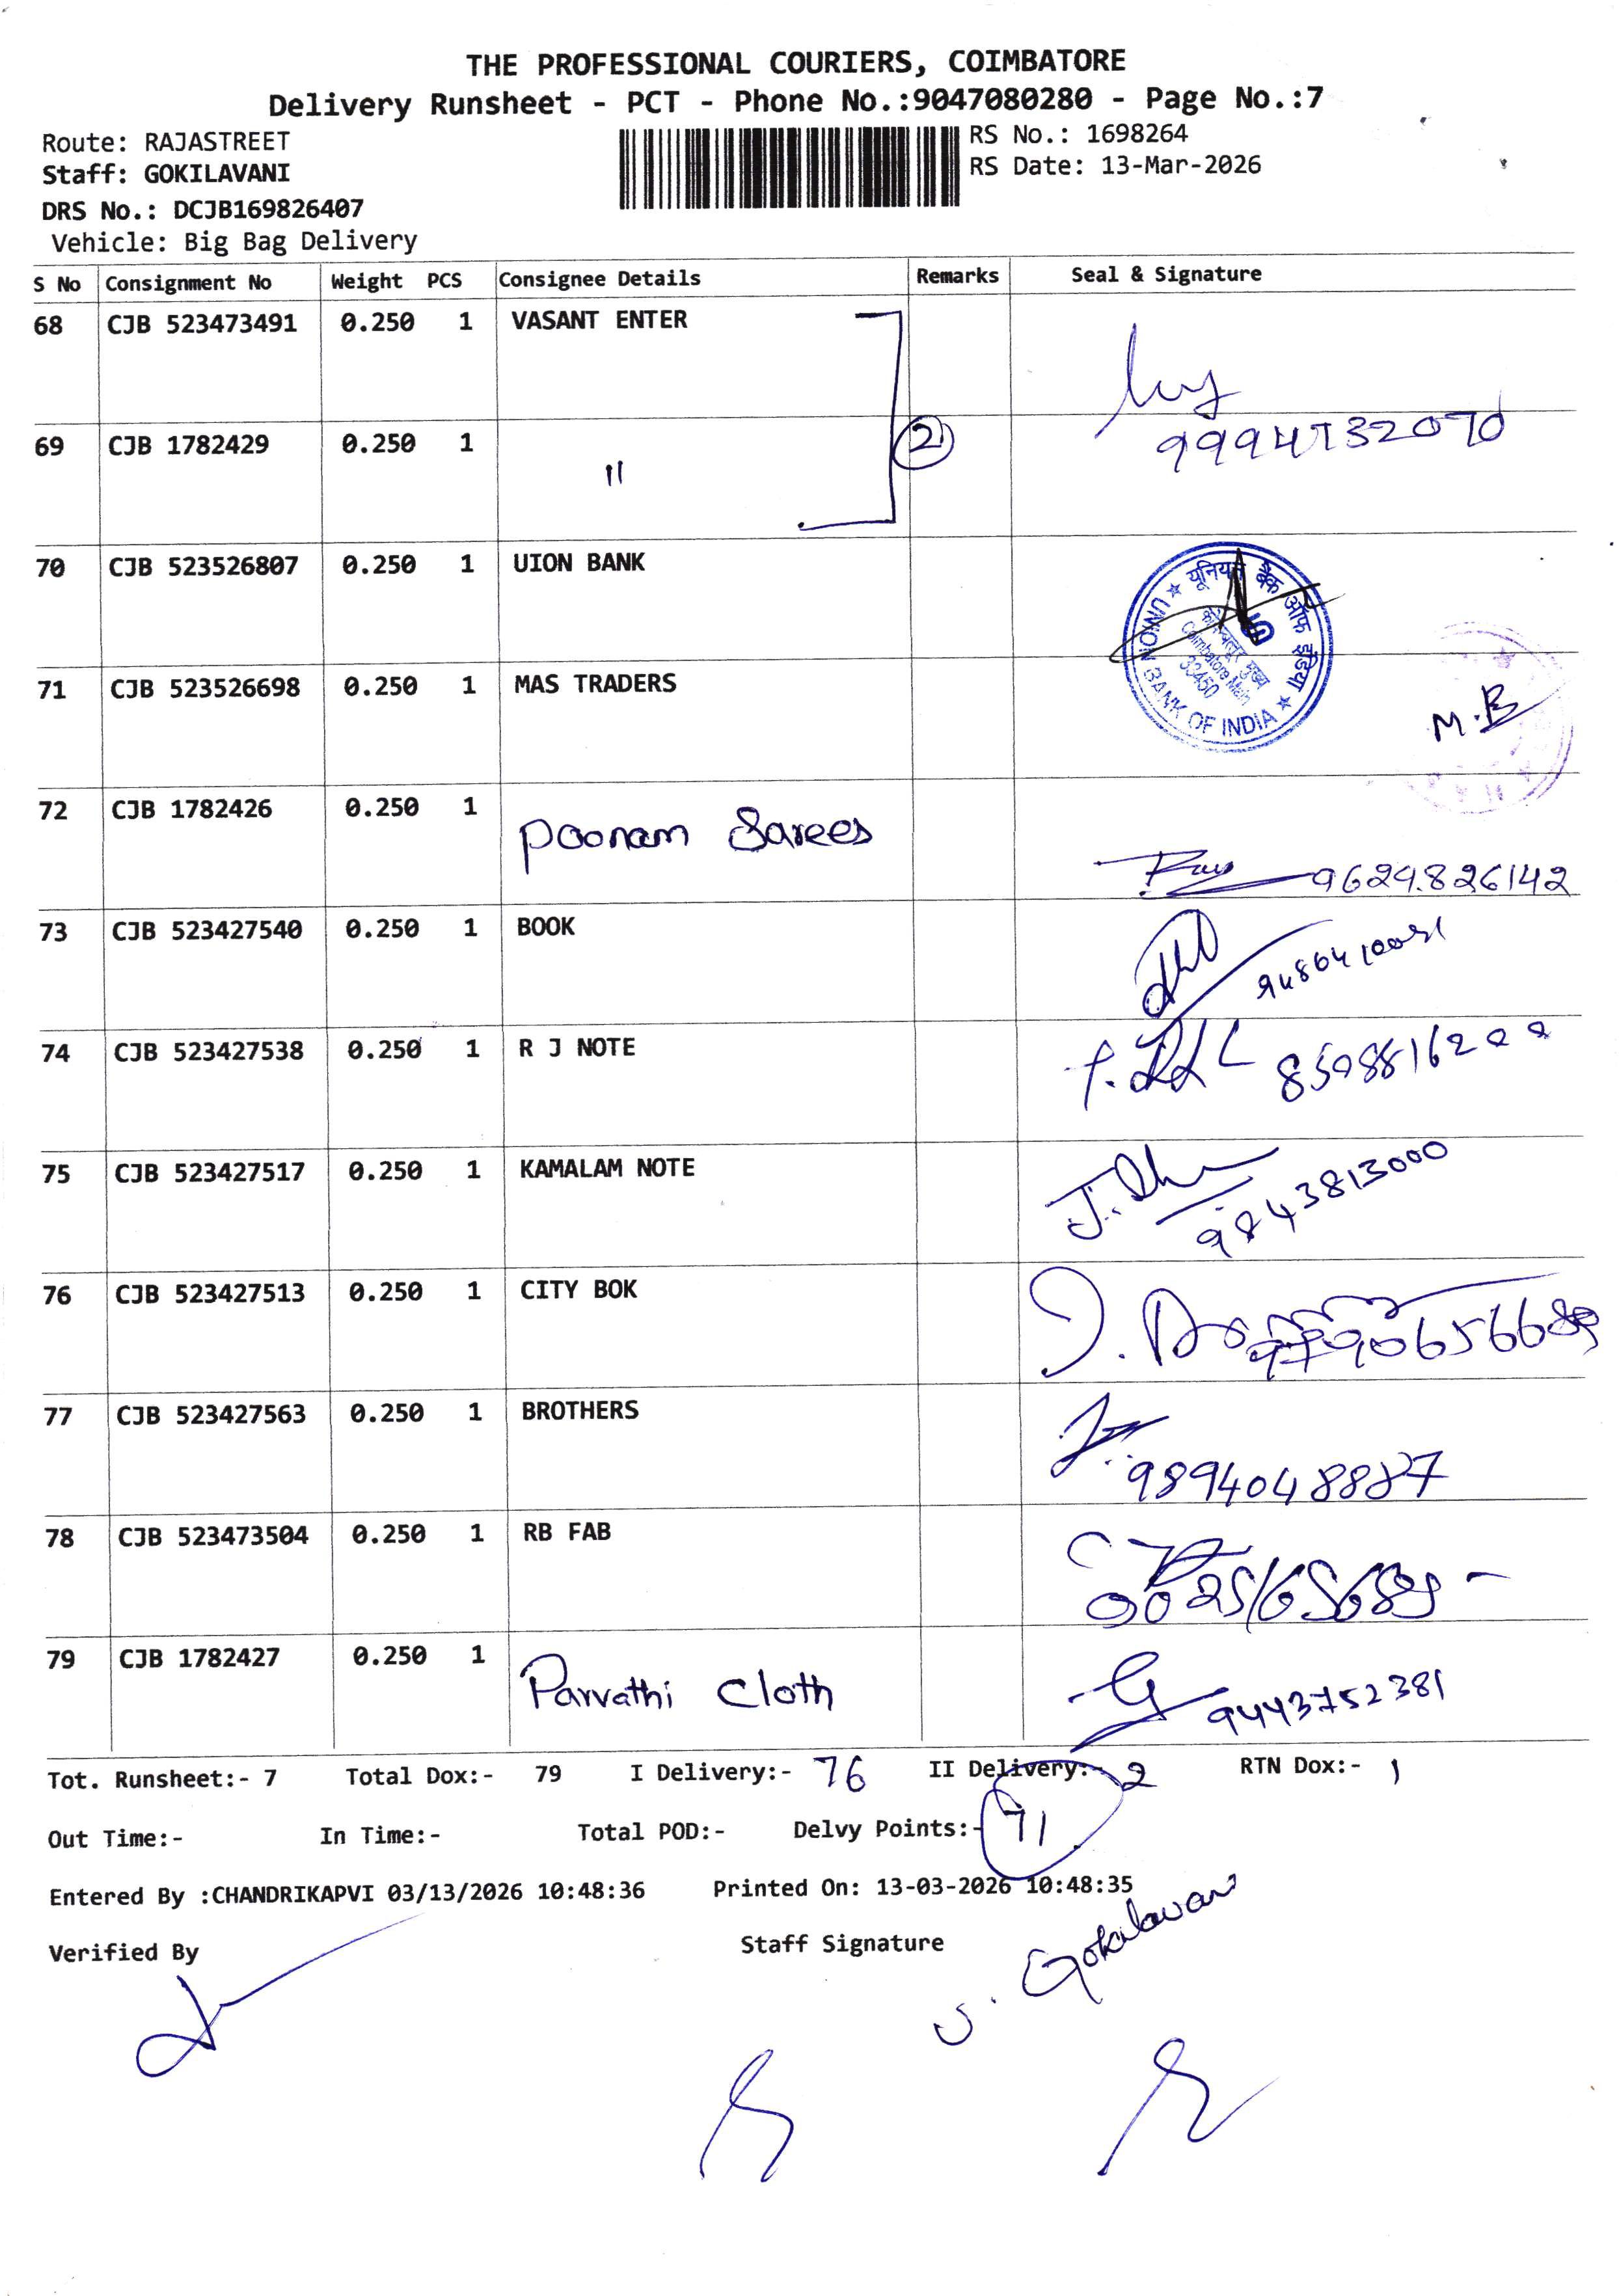 THE PROFESSIONAL COURIERS, COIMBATORE
Delivery Runsheet - PCT - Phone No.:9047080280 - Page No.:7
Route: RAJASTREET
RS No.: 1698264
Staff: GOKILAVANI
RS Date: 13-Mar-2026
DRS No.: DCJB169826407
Vehicle: Big Bag Delivery
S No Consignment No Weight PCS Consignee Details Remarks Seal & Signature
68 CJB 523473491 0.250 1 VASANT ENTER
69 CJB 1782429 0.250 1 " 2 9994732070
70 CJB 523526807 0.250 1 UION BANK
यूनियन बैंक ऑफ इंडिया
Coimbatore Main
33450
UNION BANK OF INDIA
71 CJB 523526698 0.250 1 MAS TRADERS M.B
72 CJB 1782426 0.250 1 Poonam Sarees 9629826142
73 CJB 523427540 0.250 1 BOOK
74 CJB 523427538 0.250 1 R J NOTE
75 CJB 523427517 0.250 1 KAMALAM NOTE 9843813000
76 CJB 523427513 0.250 1 CITY BOK
77 CJB 523427563 0.250 1 BROTHERS 9894048887
78 CJB 523473504 0.250 1 RB FAB
79 CJB 1782427 0.250 1 Parvathi Cloth 9443752381
Tot. Runsheet:- 7 Total Dox:- 79 I Delivery:- 76 II Delivery:- 2 RTN Dox:- 1
Out Time:- In Time:- Total POD:- Delvy Points:- 71
Entered By :CHANDRIKAPVI 03/13/2026 10:48:36 Printed On: 13-03-2026 10:48:35
Verified By Staff Signature
Gokilavani